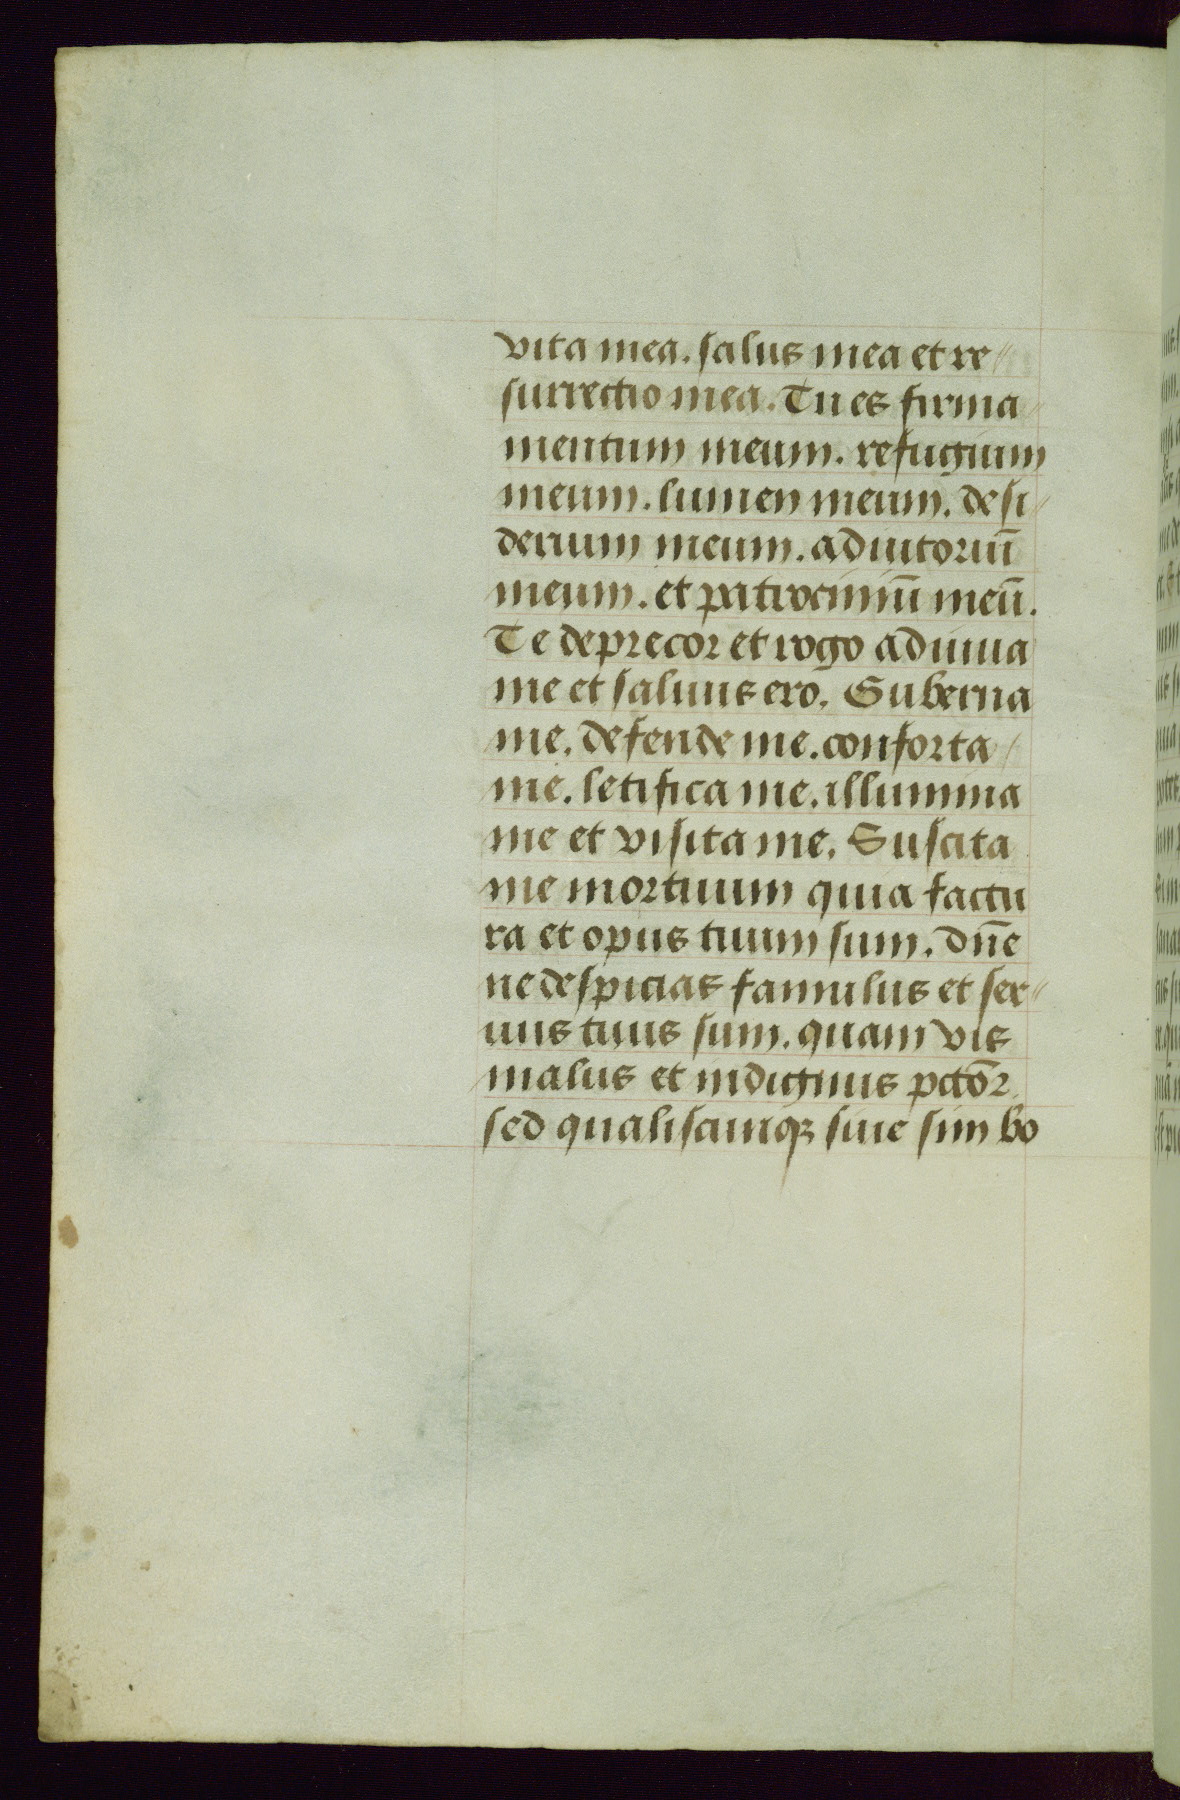 vita mea. salus mea et re
surrectio mea. Tu es firma
mentum meum. refugium
meum. lumen meum. desi
derium meum. adiutoriū
meum. et patrociniū meū.
Te deprecor et rogo adiuua
me et saluus ero. Guberna
me. defende me. conforta
me. letifica me. illumina
me et visita me. Suscita
me mortuum quia factu
ra et opus tuum sum. dn̄e
ne despicias famulus et ser
uus tuus sum. quam vis
malus et indignus pctōr
sed qualiscunqꝫ siue sim bo